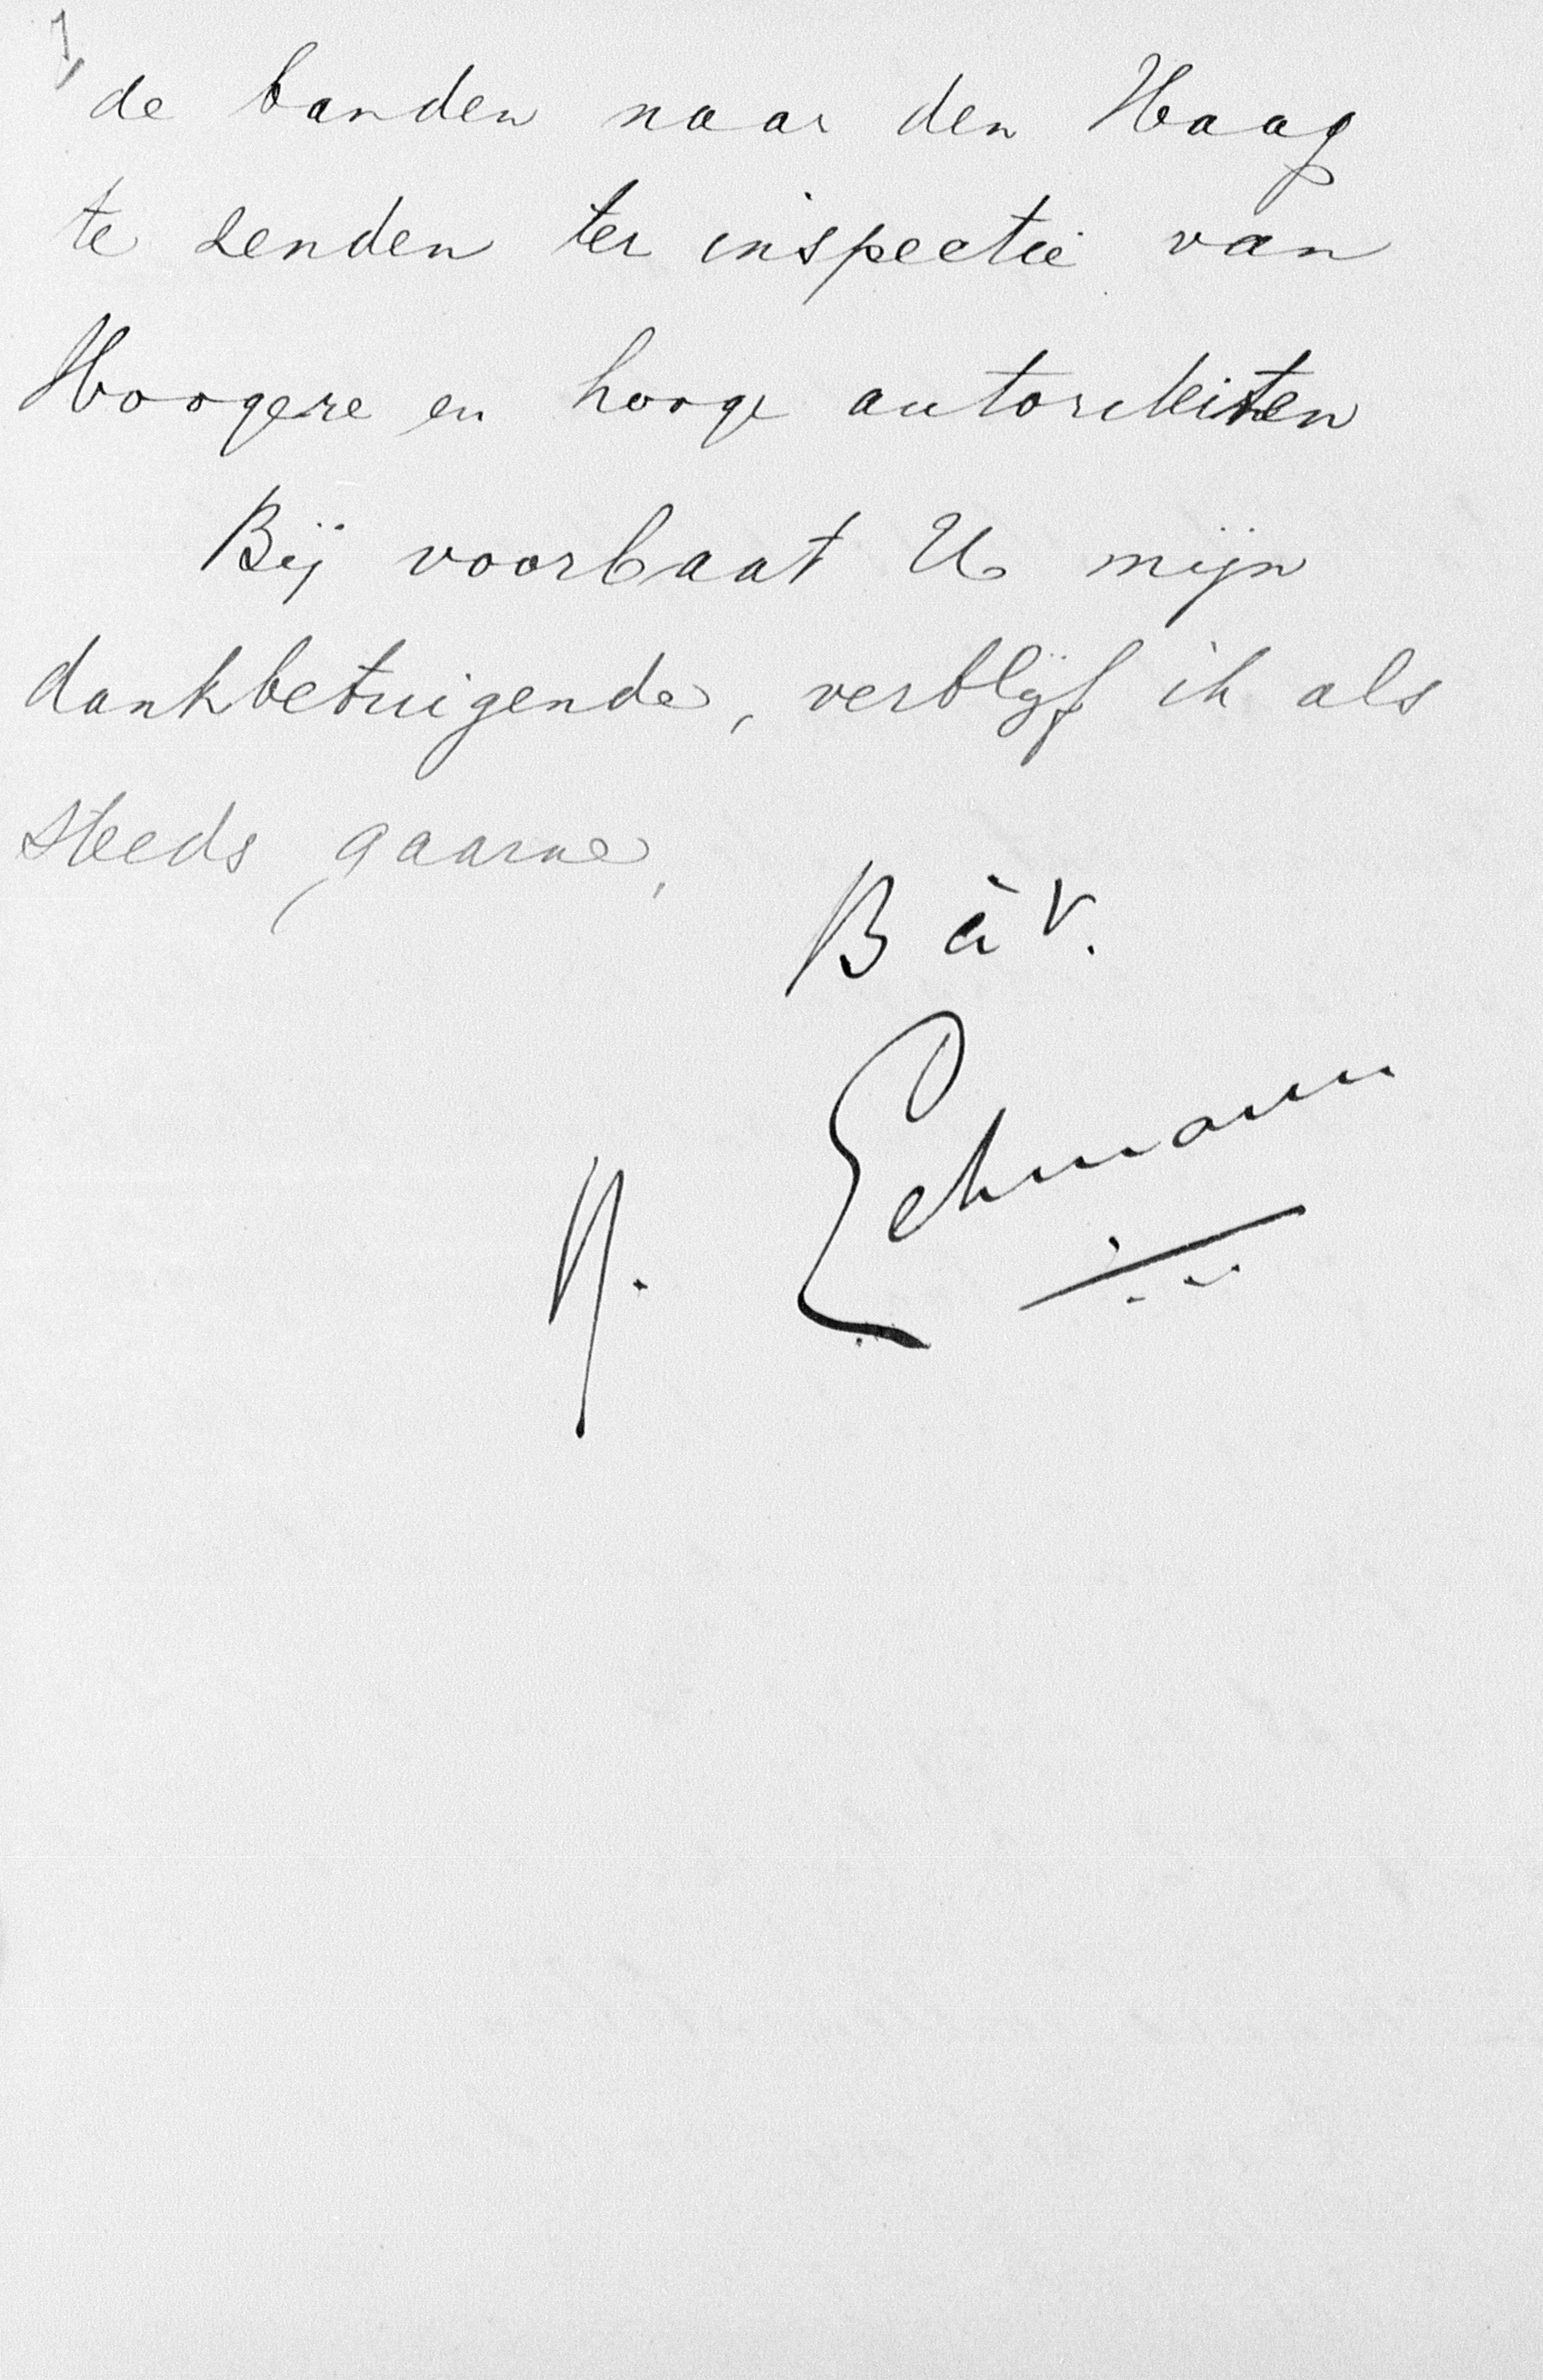 de banden naar den Haag
te zenden ter inspectie van
Hoogere en hooge autoriteiten
Bij voorbaat U mijn
dankbetuigende, verblijf ik als
steeds gaarne,
B à V.
Eehmann